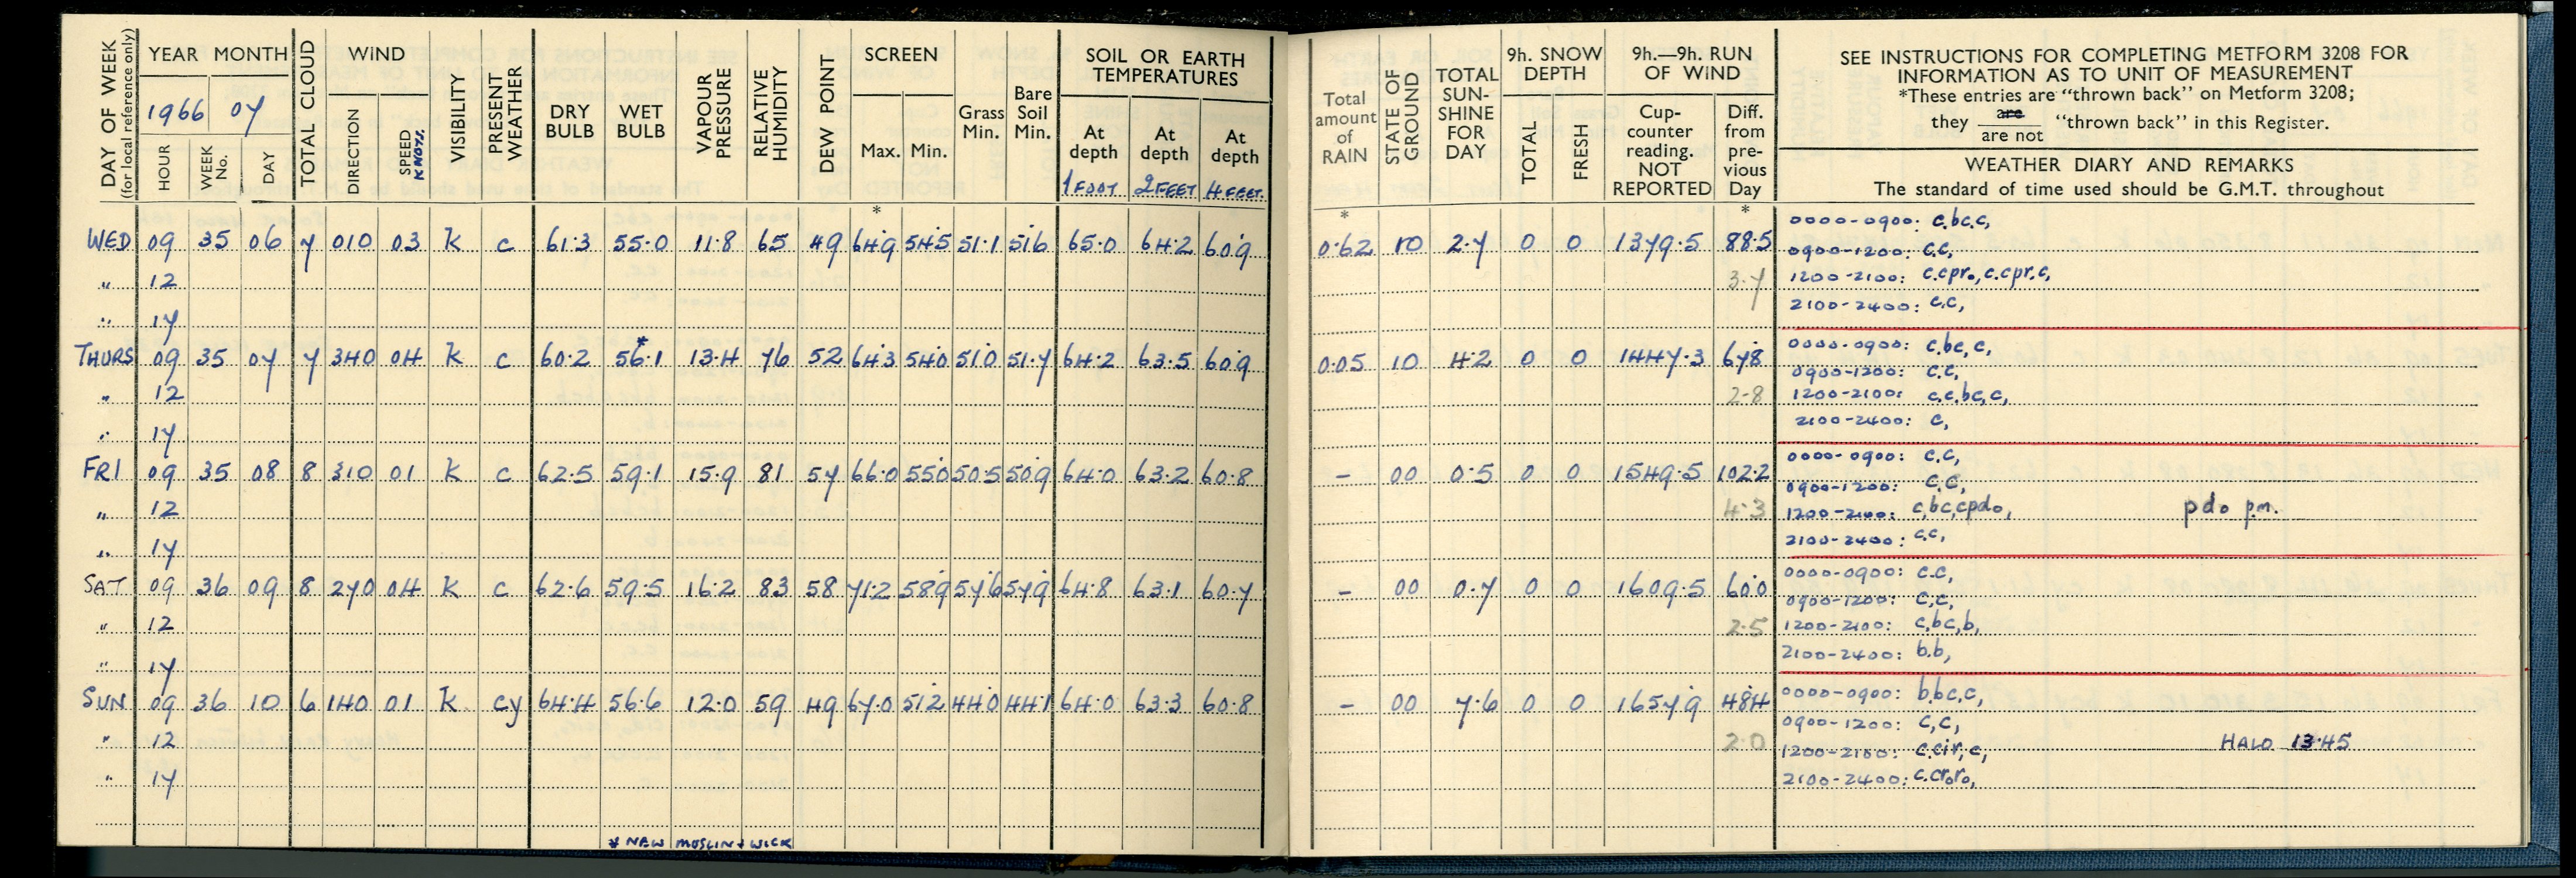 DAY OF WEEK
(for local reference only)
YEAR MONTH
1966 07
HOUR
WEEK No.
DAY
TOTAL CLOUD
WIND
DIRECTION
SPEED KNOTS.
VISIBILITY
PRESENT WEATHER
DRY BULB
WET BULB
VAPOUR PRESSURE
RELATIVE HUMIDITY
DEW POINT
SCREEN
Max. Min.
Grass Min.
Bare Soil Min.
SOIL OR EARTH TEMPERATURES
At depth 1 FOOT
At depth 2 FEET
At depth 4 FEET.
Total amount of RAIN
STATE OF GROUND
TOTAL SUN-SHINE FOR DAY
9h. SNOW DEPTH
TOTAL
FRESH
9h.—9h. RUN OF WIND
Cup-counter reading. NOT REPORTED
Diff. from pre-vious Day
SEE INSTRUCTIONS FOR COMPLETING METFORM 3208 FOR
INFORMATION AS TO UNIT OF MEASUREMENT
*These entries are "thrown back" on Metform 3208;
they are are not "thrown back" in this Register.
WEATHER DIARY AND REMARKS
The standard of time used should be G.M.T. throughout
* * *
WED 09 35 06 7 010 03 K c 61.3 55.0 11.8 65 49 64.9 54.5 51.1 51.6 65.0 64.2 60.9 0.62 10 2.7 0 0 1379.5 88.5
0000-0900: c.bc.c,
0900-1200: c.c,
" 12 3.7 1200-2100: c.cpr₀,c.cpr.c,
2100-2400: c.c,
" 17
THURS 09 35 07 7 340 04 K c 60.2 56.1* 13.4 76 52 64.3 54.0 51.0 51.7 64.2 63.5 60.9 0.05 10 4.2 0 0 1447.3 67.8
0000-0900: c.bc,c,
0900-1200: c.c,
" 12 2.8 1200-2100: c.c.bc,c,
2100-2400: c,
" 17
FRI 09 35 08 8 310 01 K c 62.5 59.1 15.9 81 57 66.0 55.0 50.5 50.9 64.0 63.2 60.8 - 00 0.5 0 0 1549.5 102.2
0000-0900: c.c,
0900-1200: c.c,
" 12 4.3 1200-2100: c,bc,cpd₀, pd₀ p.m.
2100-2400: c.c,
" 17
SAT 09 36 09 8 270 04 K c 62.6 59.5 16.2 83 58 71.2 58.9 57.6 57.9 64.8 63.1 60.7 - 00 0.7 0 0 1609.5 60.0
0000-0900: c.c,
0900-1200: c,c,
" 12 2.5 1200-2100: c,bc,b,
2100-2400: b.b,
" 17
SUN 09 36 10 6 140 01 K cy 64.4 56.6 12.0 59 49 67.0 51.2 44.0 44.1 64.0 63.3 60.8 - 00 7.6 0 0 1657.9 48.4
0000-0900: b.bc.c,
0900-1200: c,c,
" 12 2.0 1200-2100: c.cir,c, HALO 13.45
2100-2400: c.cr₀r₀,
" 17
* NEW MUSLIN & WICK